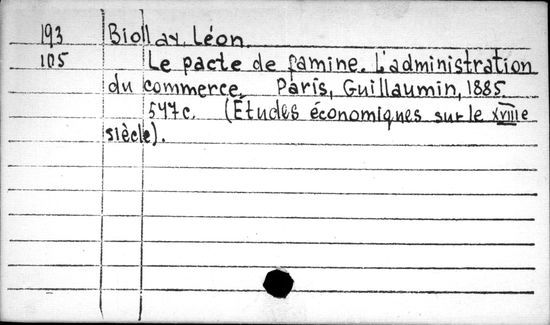 193 Biollay, Léon.
105 Le pacte de famine. L'administration
du commerce. Paris, Guillaumin, 1885.
547c. (Études économiques sur le XVIIIe
siècle).